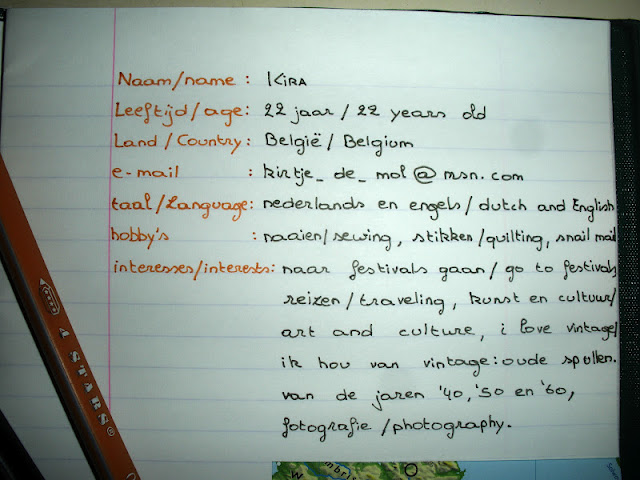 Naam/name : Kira
Leeftijd/age: 22 jaar / 22 years old
Land / Country: België / Belgium
e-mail : kirtje_de_mol@msn.com
taal/Language: nederlands en engels/dutch and English
hobby's : naaien/sewing, stikken/quilting, snail mail
interesses/interests: naar festivals gaan/ go to festivals
reizen/traveling, kunst en cultuur/
art and culture, i love vintage/
ik hou van vintage: oude spullen.
van de jaren '40, '50 en '60,
fotografie/photography.
4 STARS®